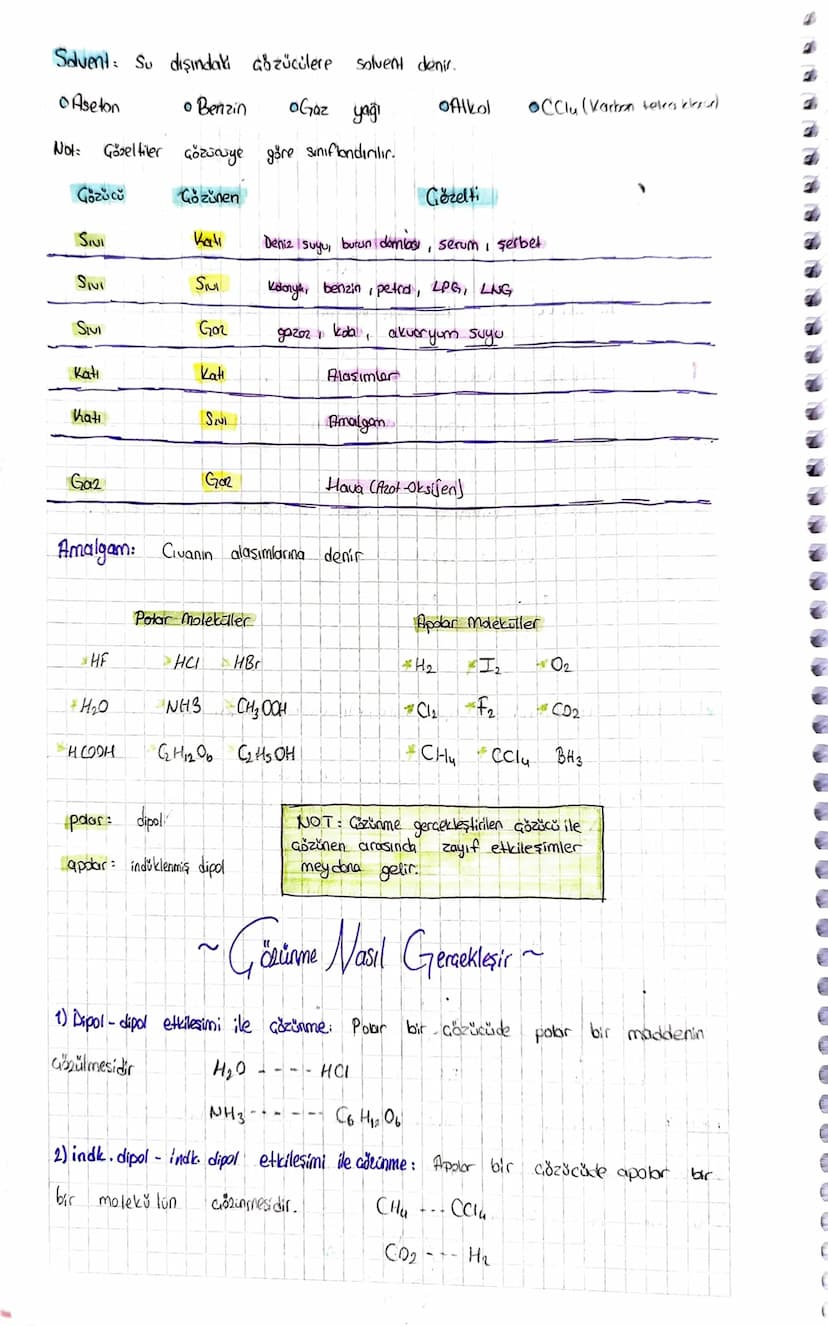 Solvent: Su dışındaki çözücülere solvent denir.
Aseton Benzin Gaz yağı Alkol CCl4 (Karbon tetra klorür)
Not: Çözeltiler çözücüye göre sınıflandırılır.
Çözücü Çözünen Çözelti
Sıvı Katı Deniz suyu, burun damlası, serum, şerbet
Sıvı Sıvı Kolonya, benzin, petrol, LPG, LNG
Sıvı Gaz gazoz, kola, akvaryum suyu
Katı Katı Alaşımlar
Katı Sıvı Amalgam
Gaz Gaz Hava (Azot-Oksijen)
Amalgam: Civanın alaşımlarına denir
Polar Moleküller Apolar Moleküller
HF HCl HBr H2 I2 O2
H2O NH3 CH3OOH Cl2 F2 CO2
HCOOH C2H12O6 C2H5OH CH4 CCl4 BH3
polar: dipol
apolar: indüklenmiş dipol
NOT: Çözünme gerçekleştirilen çözücü ile
çözünen arasında zayıf etkileşimler
meydana gelir.
~ Çözünme Nasıl Gerçekleşir ~
1) Dipol-dipol etkileşimi ile çözünme: Polar bir çözücüde polar bir maddenin
çözülmesidir H2O ---- HCl
NH3 ------ C6H12O6
2) indk. dipol - indk. dipol etkileşimi ile çözünme: Apolar bir çözücüde apolar bir
bir molekülün çözünmesidir. CH4 --- CCl4
CO2 --- H2